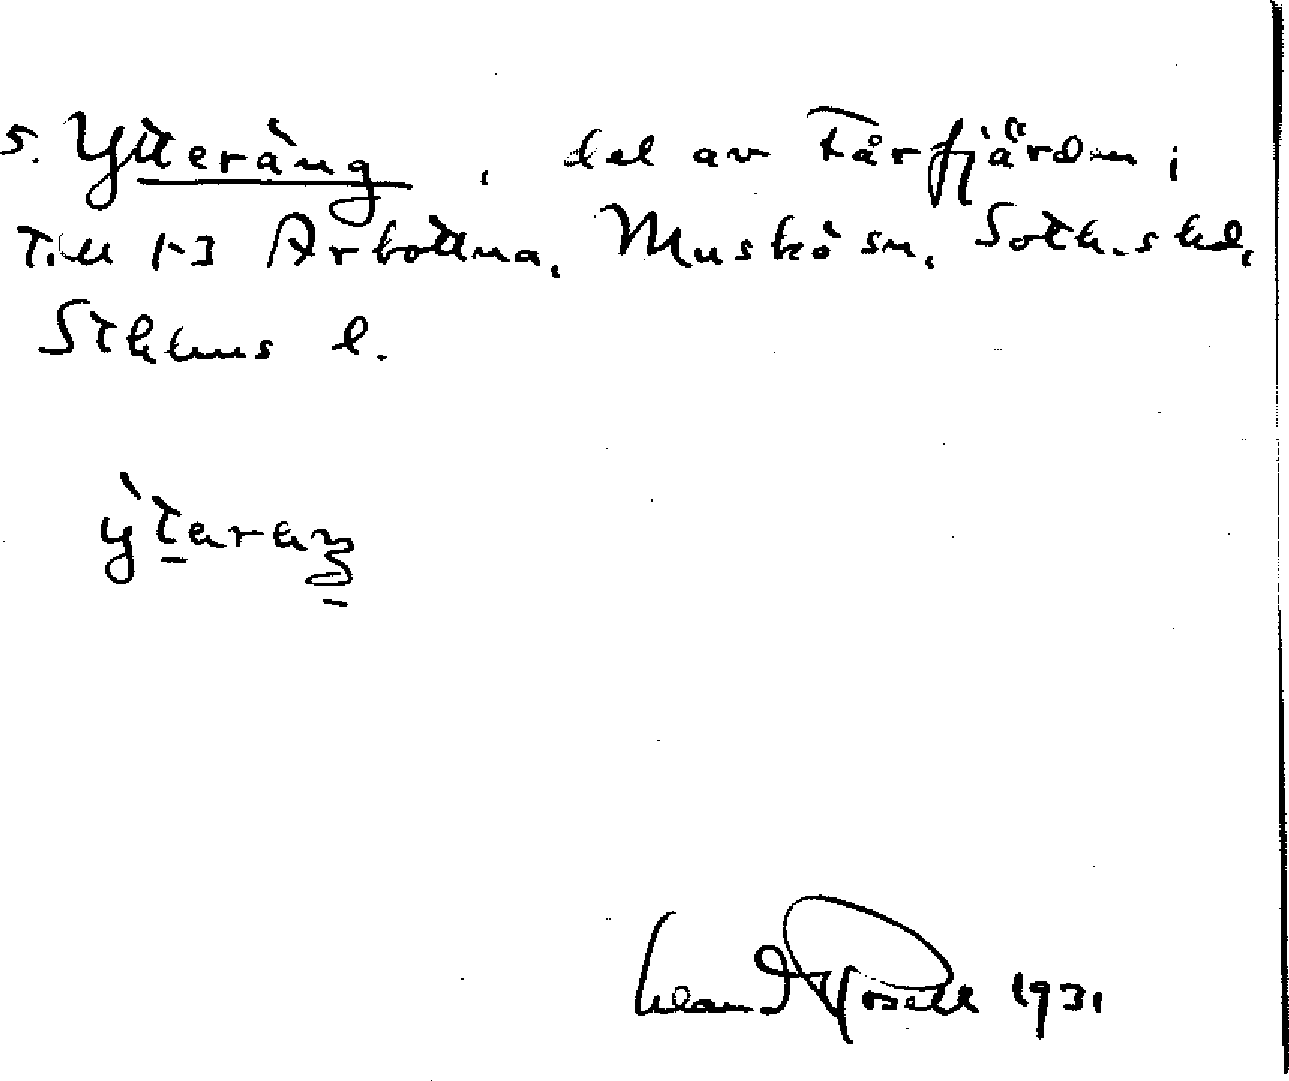 5. Ytteräng, del av Fårfjärden;
Till 1-3 Arbottna, Muskö sn, Soth.s hd,
Sthlms l.
ỳtaraŋ
1931